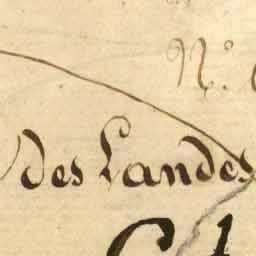 N.º
des Landes